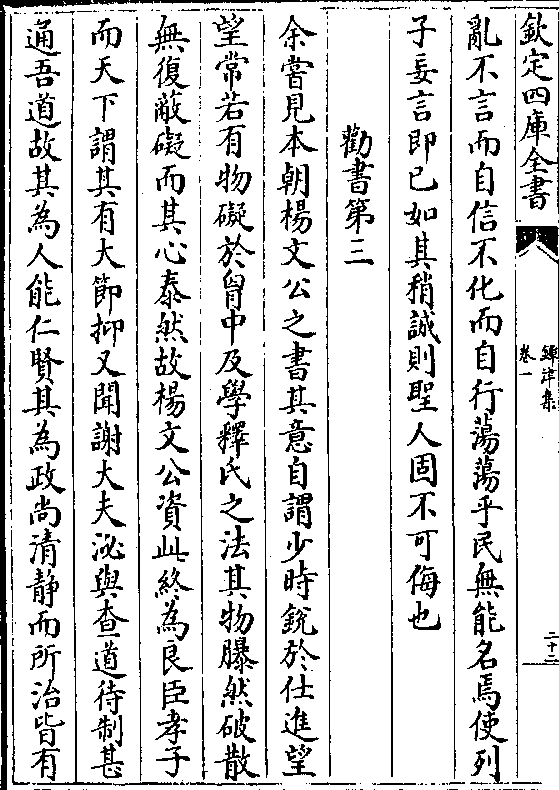 欽定四庫全書
鐔津集
卷一
二十二
亂不言而自信不化而自行蕩蕩乎民無能名焉使列
子妄言即已如其稍誠則聖人固不可侮也
勸書第三
余嘗見本朝楊文公之書其意自謂少時銳於仕進望
望常若有物礙於胷中及學釋氏之法其物㬥然破散
無復蔽礙而其心泰然故楊文公資此終為良臣孝子
而天下謂其有大節抑又聞謝大夫泌與查道待制甚
通吾道故其為人能仁賢其為政尚清静而所治皆有